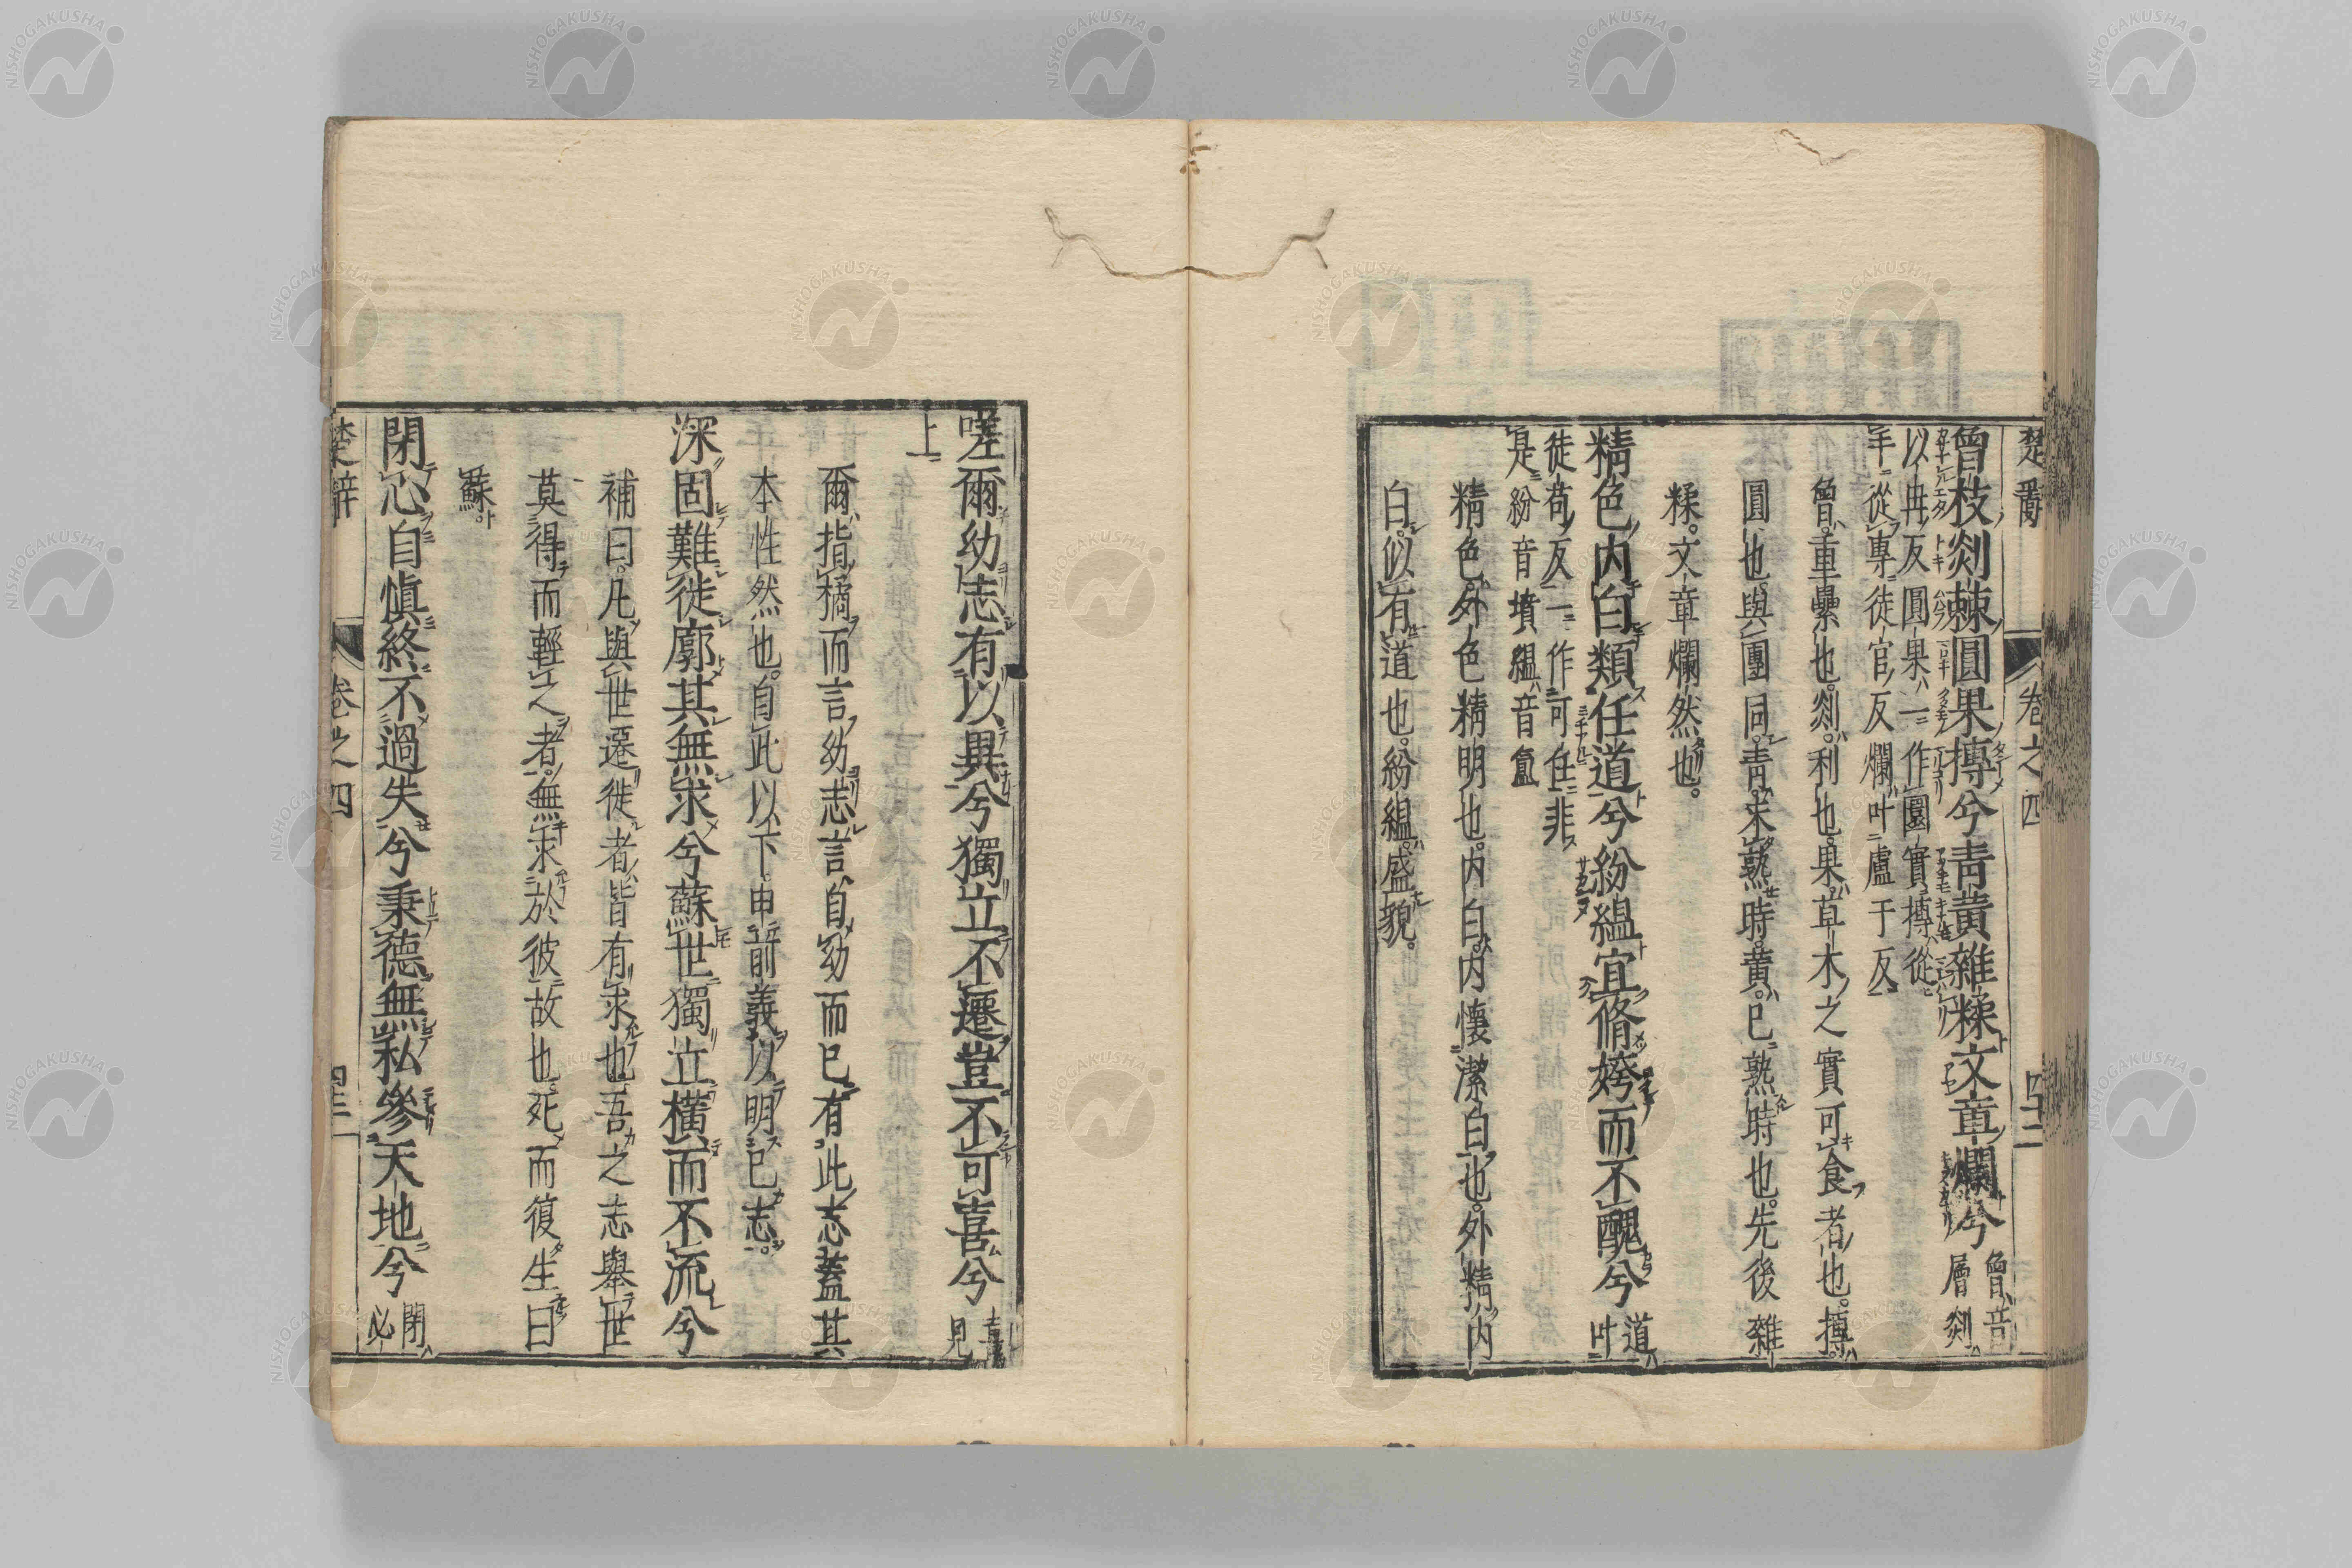 楚辭 卷之四 四十二
曾枝剡棘圓果摶兮青黃雜糅文章爛兮 曾音層剡
以冉反圓果一作圜實摶從
手從專徒官反爛叶盧于反
曾重纍也剡利也果草木之實可食者也摶
圓也與團同青未熟時黃已熟時也先後雜
糅文章爛然也
精色内白類任道兮紛緼宜脩姱而不醜兮 道叶
徒苟反一作可任非
是紛音墳緼音氳
精色外色精明也内白内懷潔白也外精内
白似有道也紛緼盛貌
嗟爾幼志有以異兮獨立不遷豈不可喜兮 見
上
爾指橘而言幼志言自幼而已有此志蓋其
本性然也自此以下申前義以明己志
深固難徙廓其無求兮蘇世獨立橫而不流兮
補曰凡與世遷徙者皆有求也吾之志舉世
莫得而輕之者無求於彼故也死而復生曰
蘇
閉心自愼終不過失兮秉德無私參天地兮 閉必
楚辭 卷之四